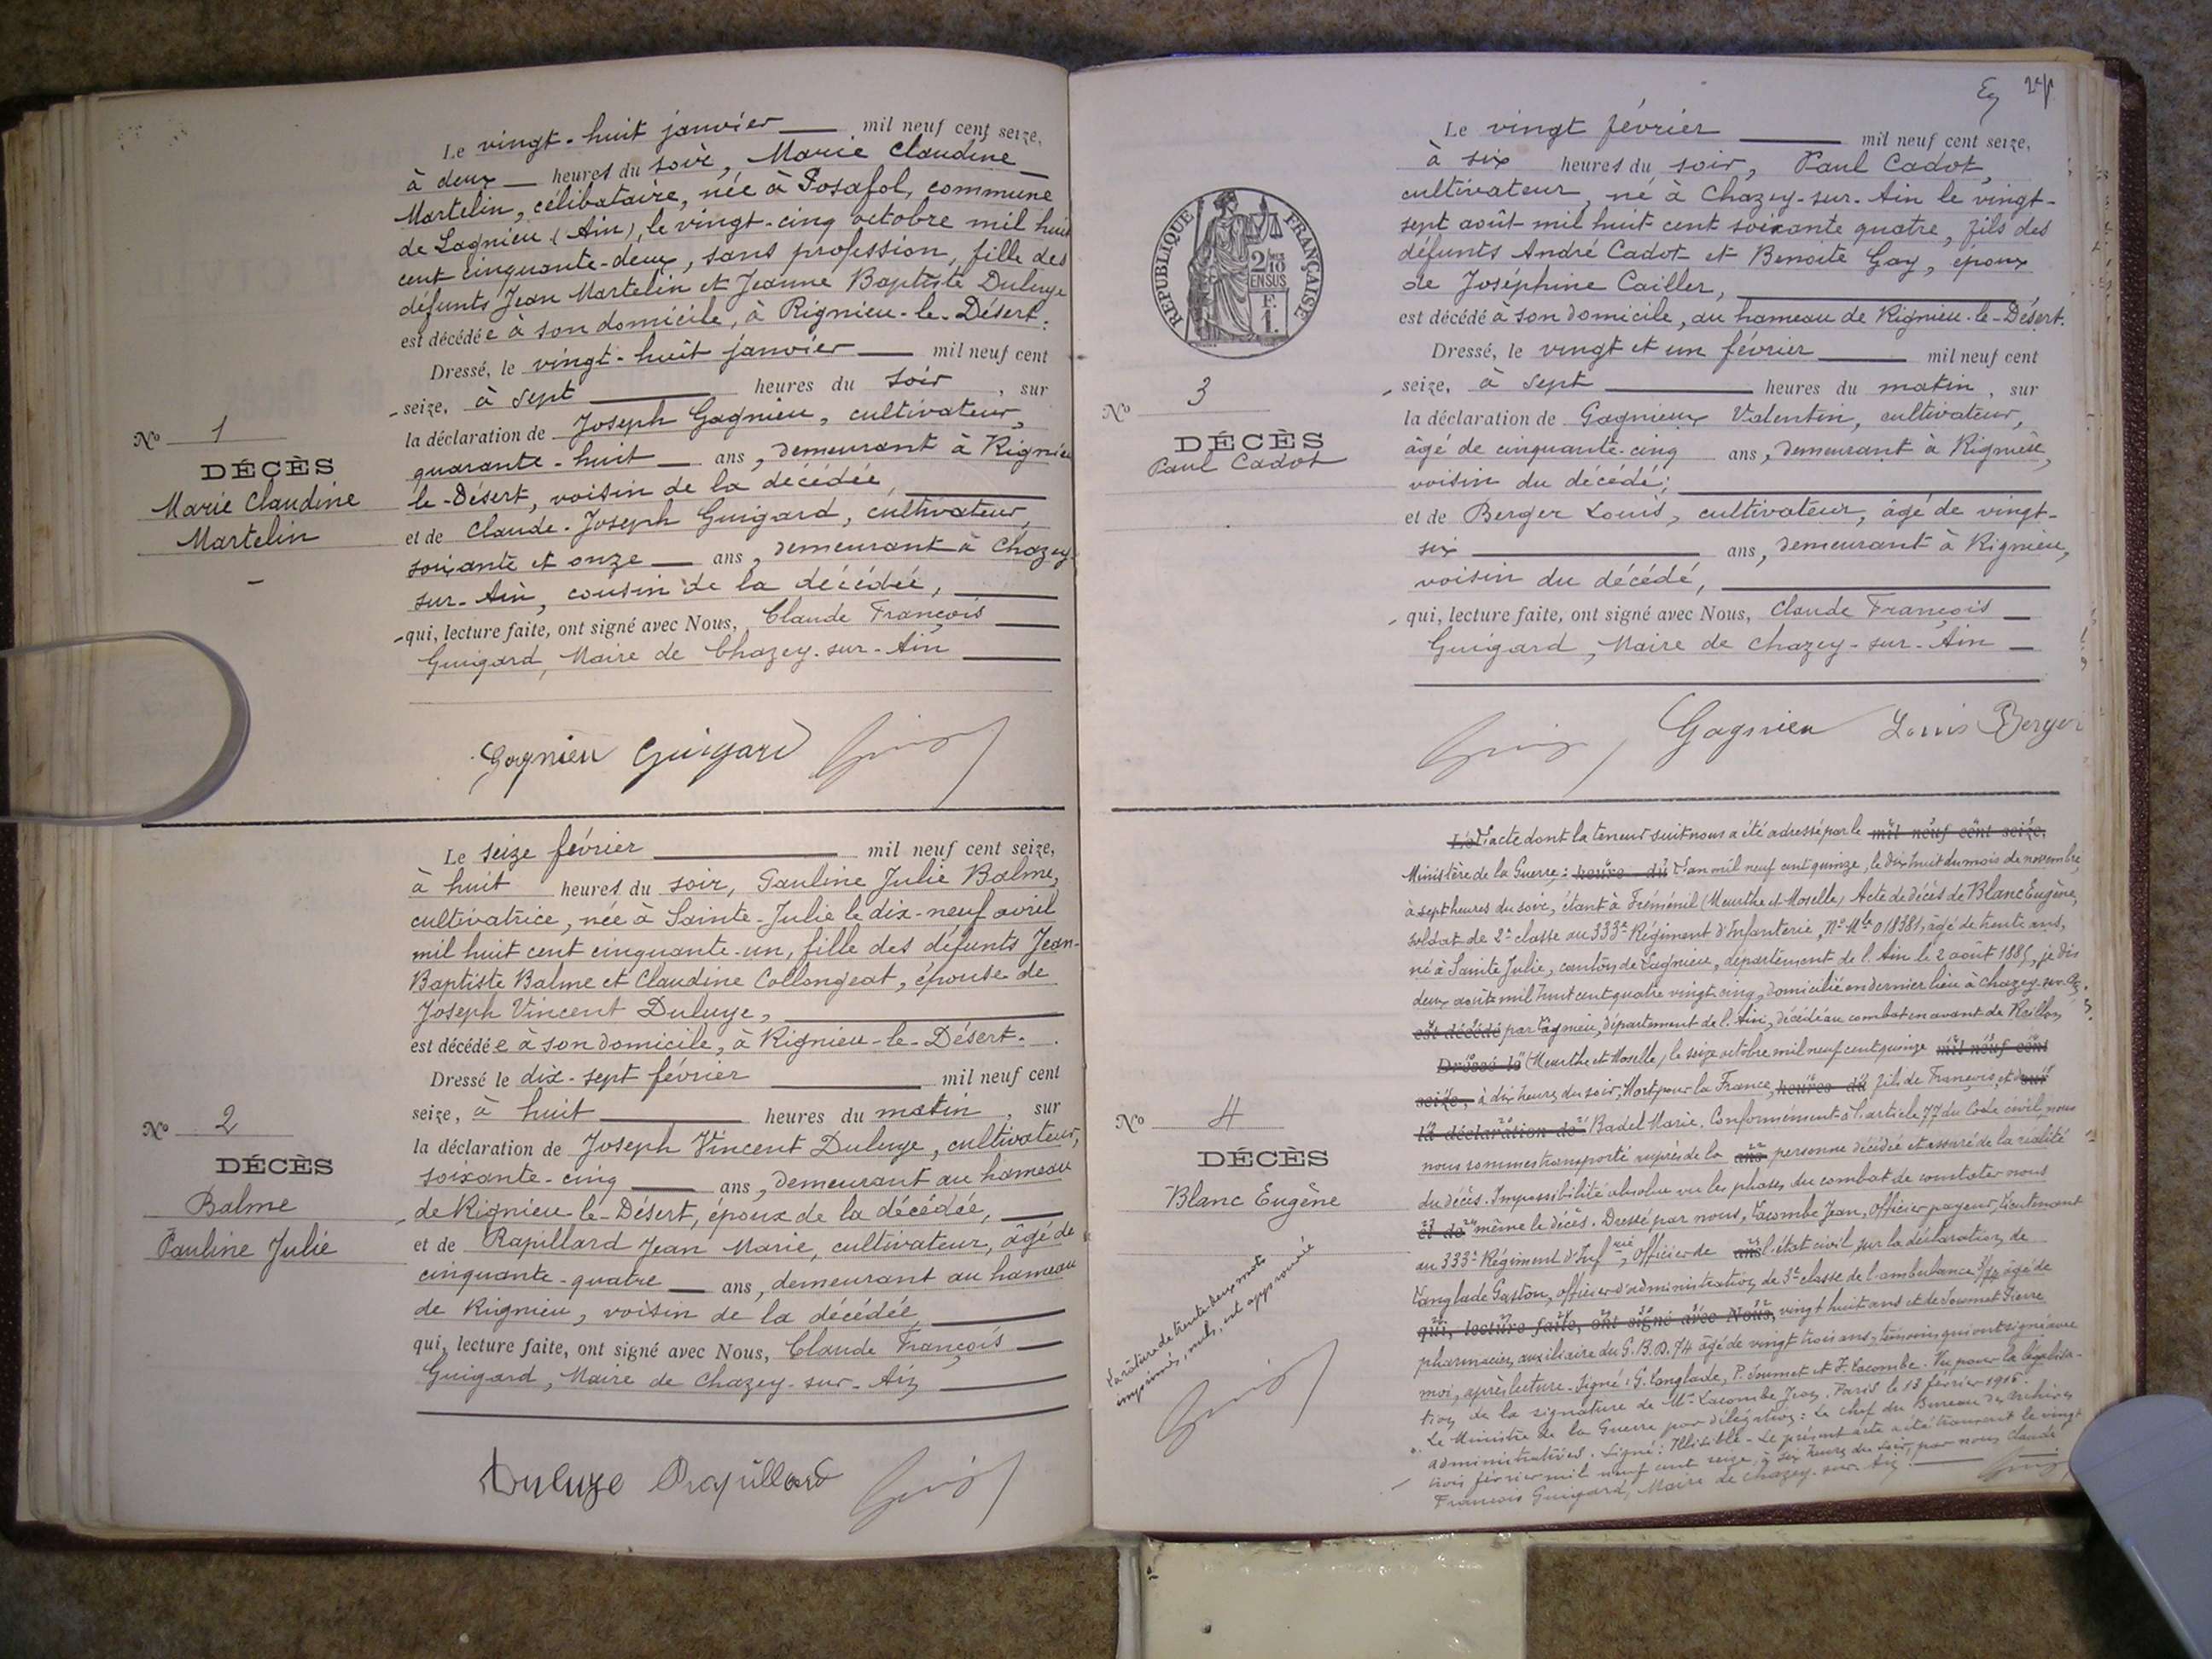 Le vingt-huit janvier mil neuf cent seize,
à deux heures du soir, Marie Claudine
Martelin, célibataire, née à Posafol, commune
de Lagnieu (Ain), le vingt-cinq octobre mil huit
cent cinquante-deux, sans profession, fille des
défunts Jean Martelin et Jeanne Baptiste Duluye
est décédée à son domicile, à Rignieu-le-Désert.
Dressé, le vingt-huit janvier mil neuf cent
seize, à sept heures du soir, sur
la déclaration de Joseph Gagnieu, cultivateur,
quarante-huit ans, demeurant à Rignieu
le-Désert, voisin de la décédée,
et de Claude-Joseph Guigard, cultivateur,
soixante et onze ans, demeurant à Chazey-
sur-Ain, cousin de la décédée,
qui, lecture faite, ont signé avec Nous, Claude François
Guigard, Maire de Chazey-sur-Ain
Gagnieu Guigard
No 1
DÉCÈS
Marie Claudine
Martelin
Le seize février mil neuf cent seize,
à huit heures du soir, Pauline Julie Balme,
cultivatrice, née à Sainte-Julie le dix-neuf avril
mil huit cent cinquante-un, fille des défunts Jean-
Baptiste Balme et Claudine Collongeat, épouse de
Joseph Vincent Duluye,
est décédée à son domicile, à Rignieu-le-Désert.
Dressé le dix-sept février mil neuf cent
seize, à huit heures du matin, sur
la déclaration de Joseph Vincent Duluye, cultivateur,
soixante-cinq ans, demeurant au hameau
de Rignieu-le-Désert, époux de la décédée,
et de Rapillard Jean Marie, cultivateur, âgé de
cinquante-quatre ans, demeurant au hameau
de Rignieu, voisin de la décédée,
qui, lecture faite, ont signé avec Nous, Claude François
Guigard, Maire de Chazey-sur-Ain
Duluye Rapillard
No 2
DÉCÈS
Balme
Pauline Julie
Le vingt février mil neuf cent seize,
à six heures du soir, Paul Cadot,
cultivateur, né à Chazey-sur-Ain le vingt-
sept août mil huit cent soixante quatre, fils des
défunts André Cadot et Benoite Gay, époux
de Joséphine Cailler,
est décédé à son domicile, au hameau de Rignieu-le-Désert.
Dressé, le vingt et un février mil neuf cent
seize, à sept heures du matin, sur
la déclaration de Gagnieux Valentin, cultivateur,
âgé de cinquante-cinq ans, demeurant à Rignieu,
voisin du décédé;
et de Berger Louis, cultivateur, âgé de vingt-
six ans, demeurant à Rignieu,
voisin du décédé,
qui, lecture faite, ont signé avec Nous, Claude François
Guigard, Maire de Chazey-sur-Ain
Gagnieu Louis Berger
RÉPUBLIQUE FRANÇAISE
2/10 EN SUS
F. 1.
No 3
DÉCÈS
Paul Cadot
Le L'acte dont la teneur suit nous a été adressé par le mil neuf cent seize,
Ministère de la Guerre: heure du L'an mil neuf cent quinze, le dix huit du mois de novembre,
à sept heures du soir, étant à Fréménil (Meurthe et Moselle) Acte de décès de Blanc Eugène,
soldat de 2e classe au 333e Régiment d'Infanterie, No Mle 018381, âgé de trente ans,
né à Sainte Julie, canton de Lagnieu, département de l'Ain le 2 août 1885, je dis
deux août mil huit cent quatre vingt cinq, domicilié en dernier lieu à Chazey-sur-Ain,
est décédé par Lagnieu, département de l'Ain, décédé au combat en avant de Reillon
Dressé le (Meurthe et Moselle) le seize octobre mil neuf cent quinze mil neuf cent
seize, à dix heures du soir, Mort pour la France, heures du fils de François et de sur
la déclaration de Badel Marie. Conformément à l'article 77 du Code civil, nous
nous sommes transporté auprès de la ans personne décédée et assuré de la réalité
du décès. Impossibilité absolue vu les phases du combat de constater nous
et de même le décès. Dressé par nous, Lacombe Jean, Officier payeur, Lieutenant
au 333e Régiment d'Infrie, Officier de ans l'état civil sur la déclaration de
Langlade Gaston, officier d'administration de 3e classe de l'ambulance âgé de
qui, lecture faite, ont signé avec Nous, vingt huit ans et de Joumet Pierre
pharmacien auxiliaire du G.B.D. 74 âgé de vingt trois ans, témoins qui ont signé avec
moi, après lecture. Signé: G. Langlade, P. Joumet et J. Lacombe. Vu pour la légalisa-
tion de la signature de Mr Lacombe Jean. Paris le 13 février 1916.
Le Ministre de la Guerre par délégation: Le Chef du Bureau des Archives
administratives. Signé: Illisible - Le présent acte a été transcrit le vingt
trois février mil neuf cent seize, à six heures du soir, par nous Claude
François Guigard, Maire de Chazey-sur-Ain.
No 4
DÉCÈS
Blanc Eugène
La râture de trente deux mots
imprimés, nuls, est approuvée